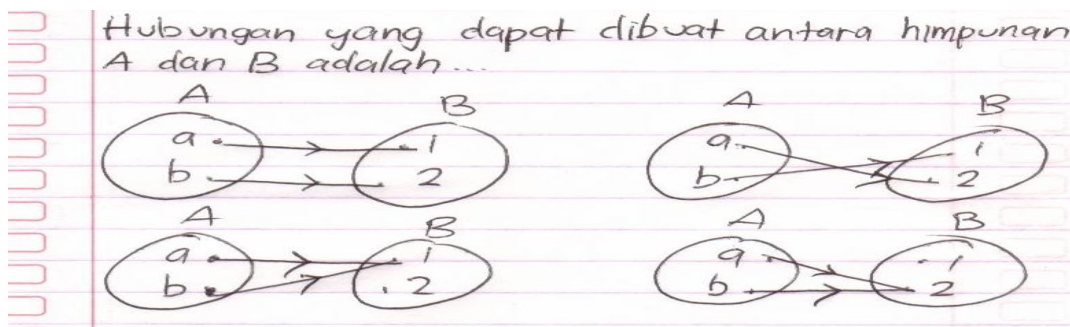 Hubungan yang dapat dibuat antara himpunan
A dan B adalah...
A B
a 1
b 2
A B
a 1
b 2
A B
a 1
b 2
A B
a 1
b 2